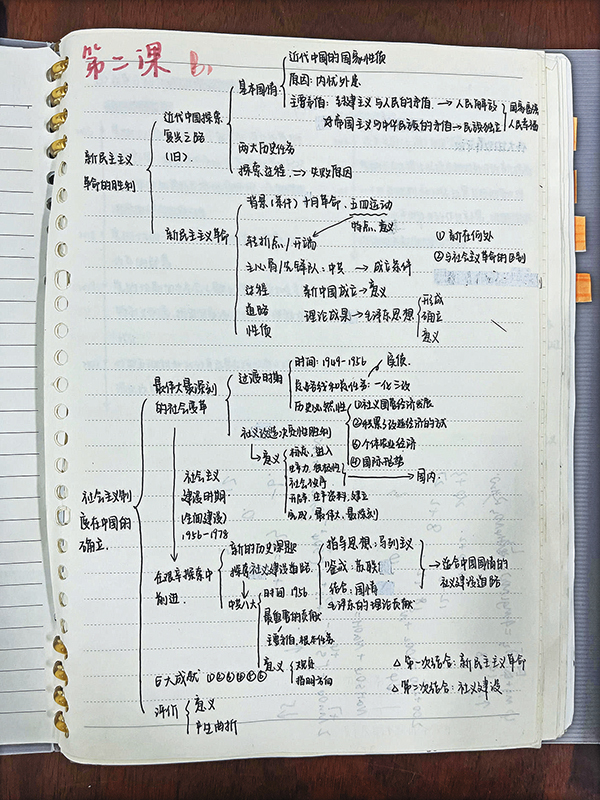 第二课
近代中国的国家性质
基本国情
原因：内忧外患
主要矛盾：封建主义与人民的矛盾 → 人民解放
国家富强
近代中国探索
帝国主义与中华民族的矛盾 → 民族独立
人民幸福
复兴之路
(旧)
两大历史任务
新民主主义
革命的胜利
探索过程 => 失败原因
背景(条件) 十月革命、五四运动
特点、意义
新民主主义革命
转折点/开端
① 新在何处
主心骨/先锋队：中共 → 成立条件
②与社会主义革命的区别
过程
新中国成立→意义
形成
道路
理论成果→毛泽东思想
确立
性质
意义
时间：1949-1956
实质
最伟大最深刻
的社会变革
过渡时期
总路线和总任务：一化三改
历史必然性
①社义国营经济发展
社义改造决定性胜利
③个体农业经济
④国际形势
意义
社会制度
国内
社会主义
建设时期
(全面建设)
1956-1978
完成、最伟大、最深刻
社会主义制
度在中国的
确立
新的历史课题
指导思想：马列主义
探索社义建设道路
鉴戒：苏联
→ 适合中国国情的
社义建设道路
在艰辛探索中
前进
结合：国情
中共八大
时间 1956
毛泽东的理论贡献
最重要的贡献
主要矛盾，根本任务
意义
指明方向
巨大成就 ①②③④⑤⑥
△ 第一次结合：新民主主义革命
△ 第二次结合：社义建设
评价
意义
产生曲折